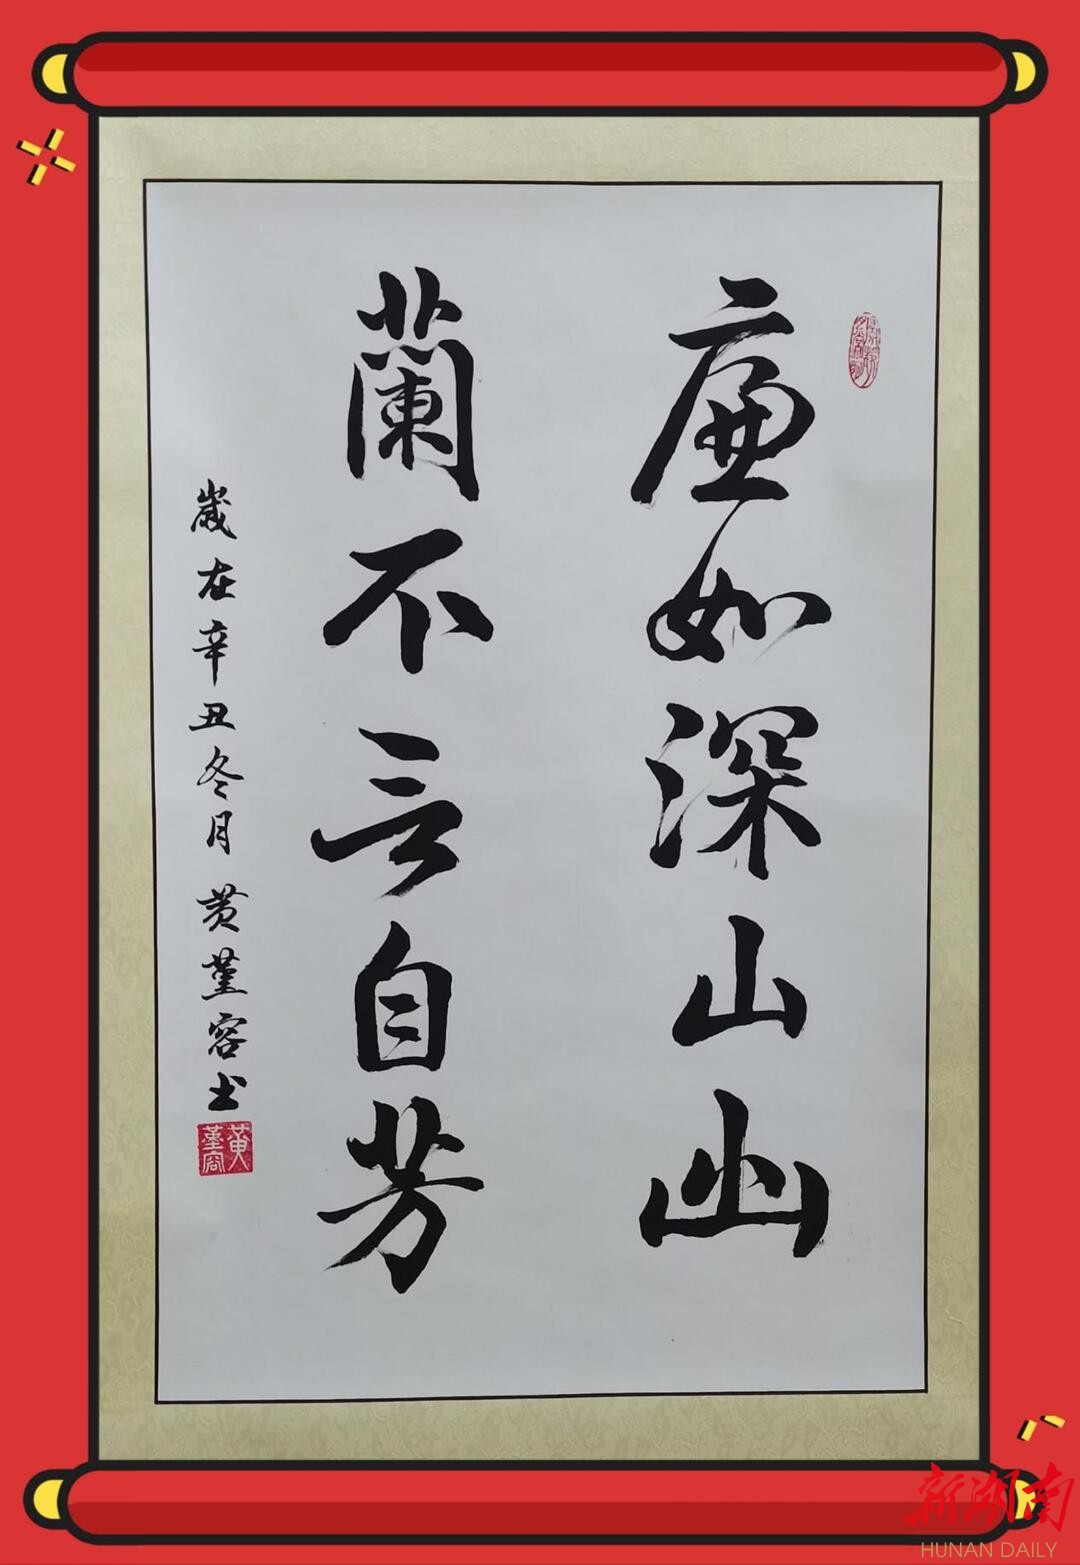 廉如深山幽
蘭不言自芳
歲在辛丑冬月 黄堇容书
黄堇容
新湖南
HUNAN DAILY